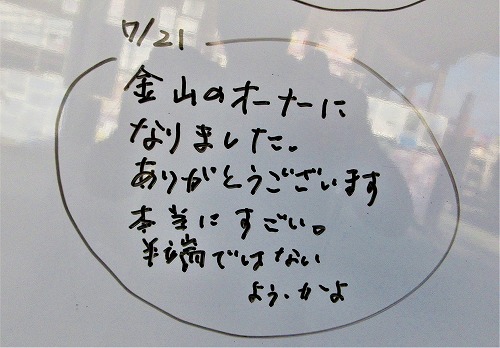 7/21
金山のオーナーに
なりました。
ありがとうございます
本当にすごい。
半端ではない
よう・かよ